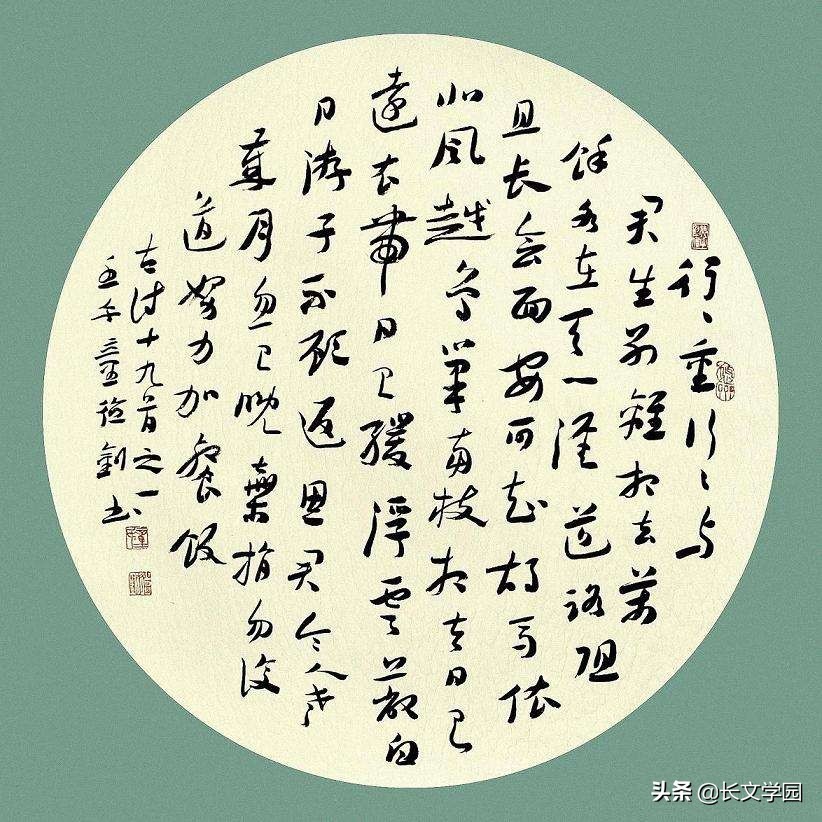 行〻重行〻与
君生别離相去萬
餘各在天一涯道路阻
且长会面安可知胡马依
北风越鸟巢南枝相去日已
遠衣带日已緩浮雲蔽白
日游子不顾返思君令人老
歲月忽已晚棄捐勿復
道努力加餐饭
古诗十九首之一
午 劍书
头条 @长文学园